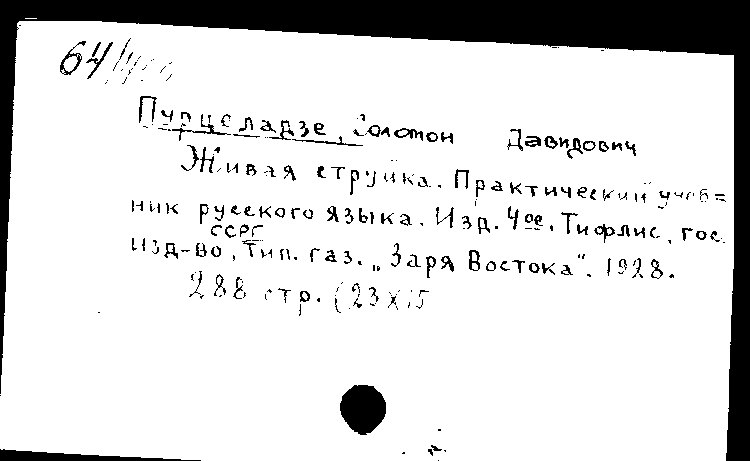 64/
Пурцеладзе, Соломон Давидович
Живая струйка. Практический учеб=
ник русского языка. Изд. 4ое. Тифлис, гос.
ССРГ
изд-во, Тип. газ. „Заря Востока“. 1928.
288 стр. (23x15